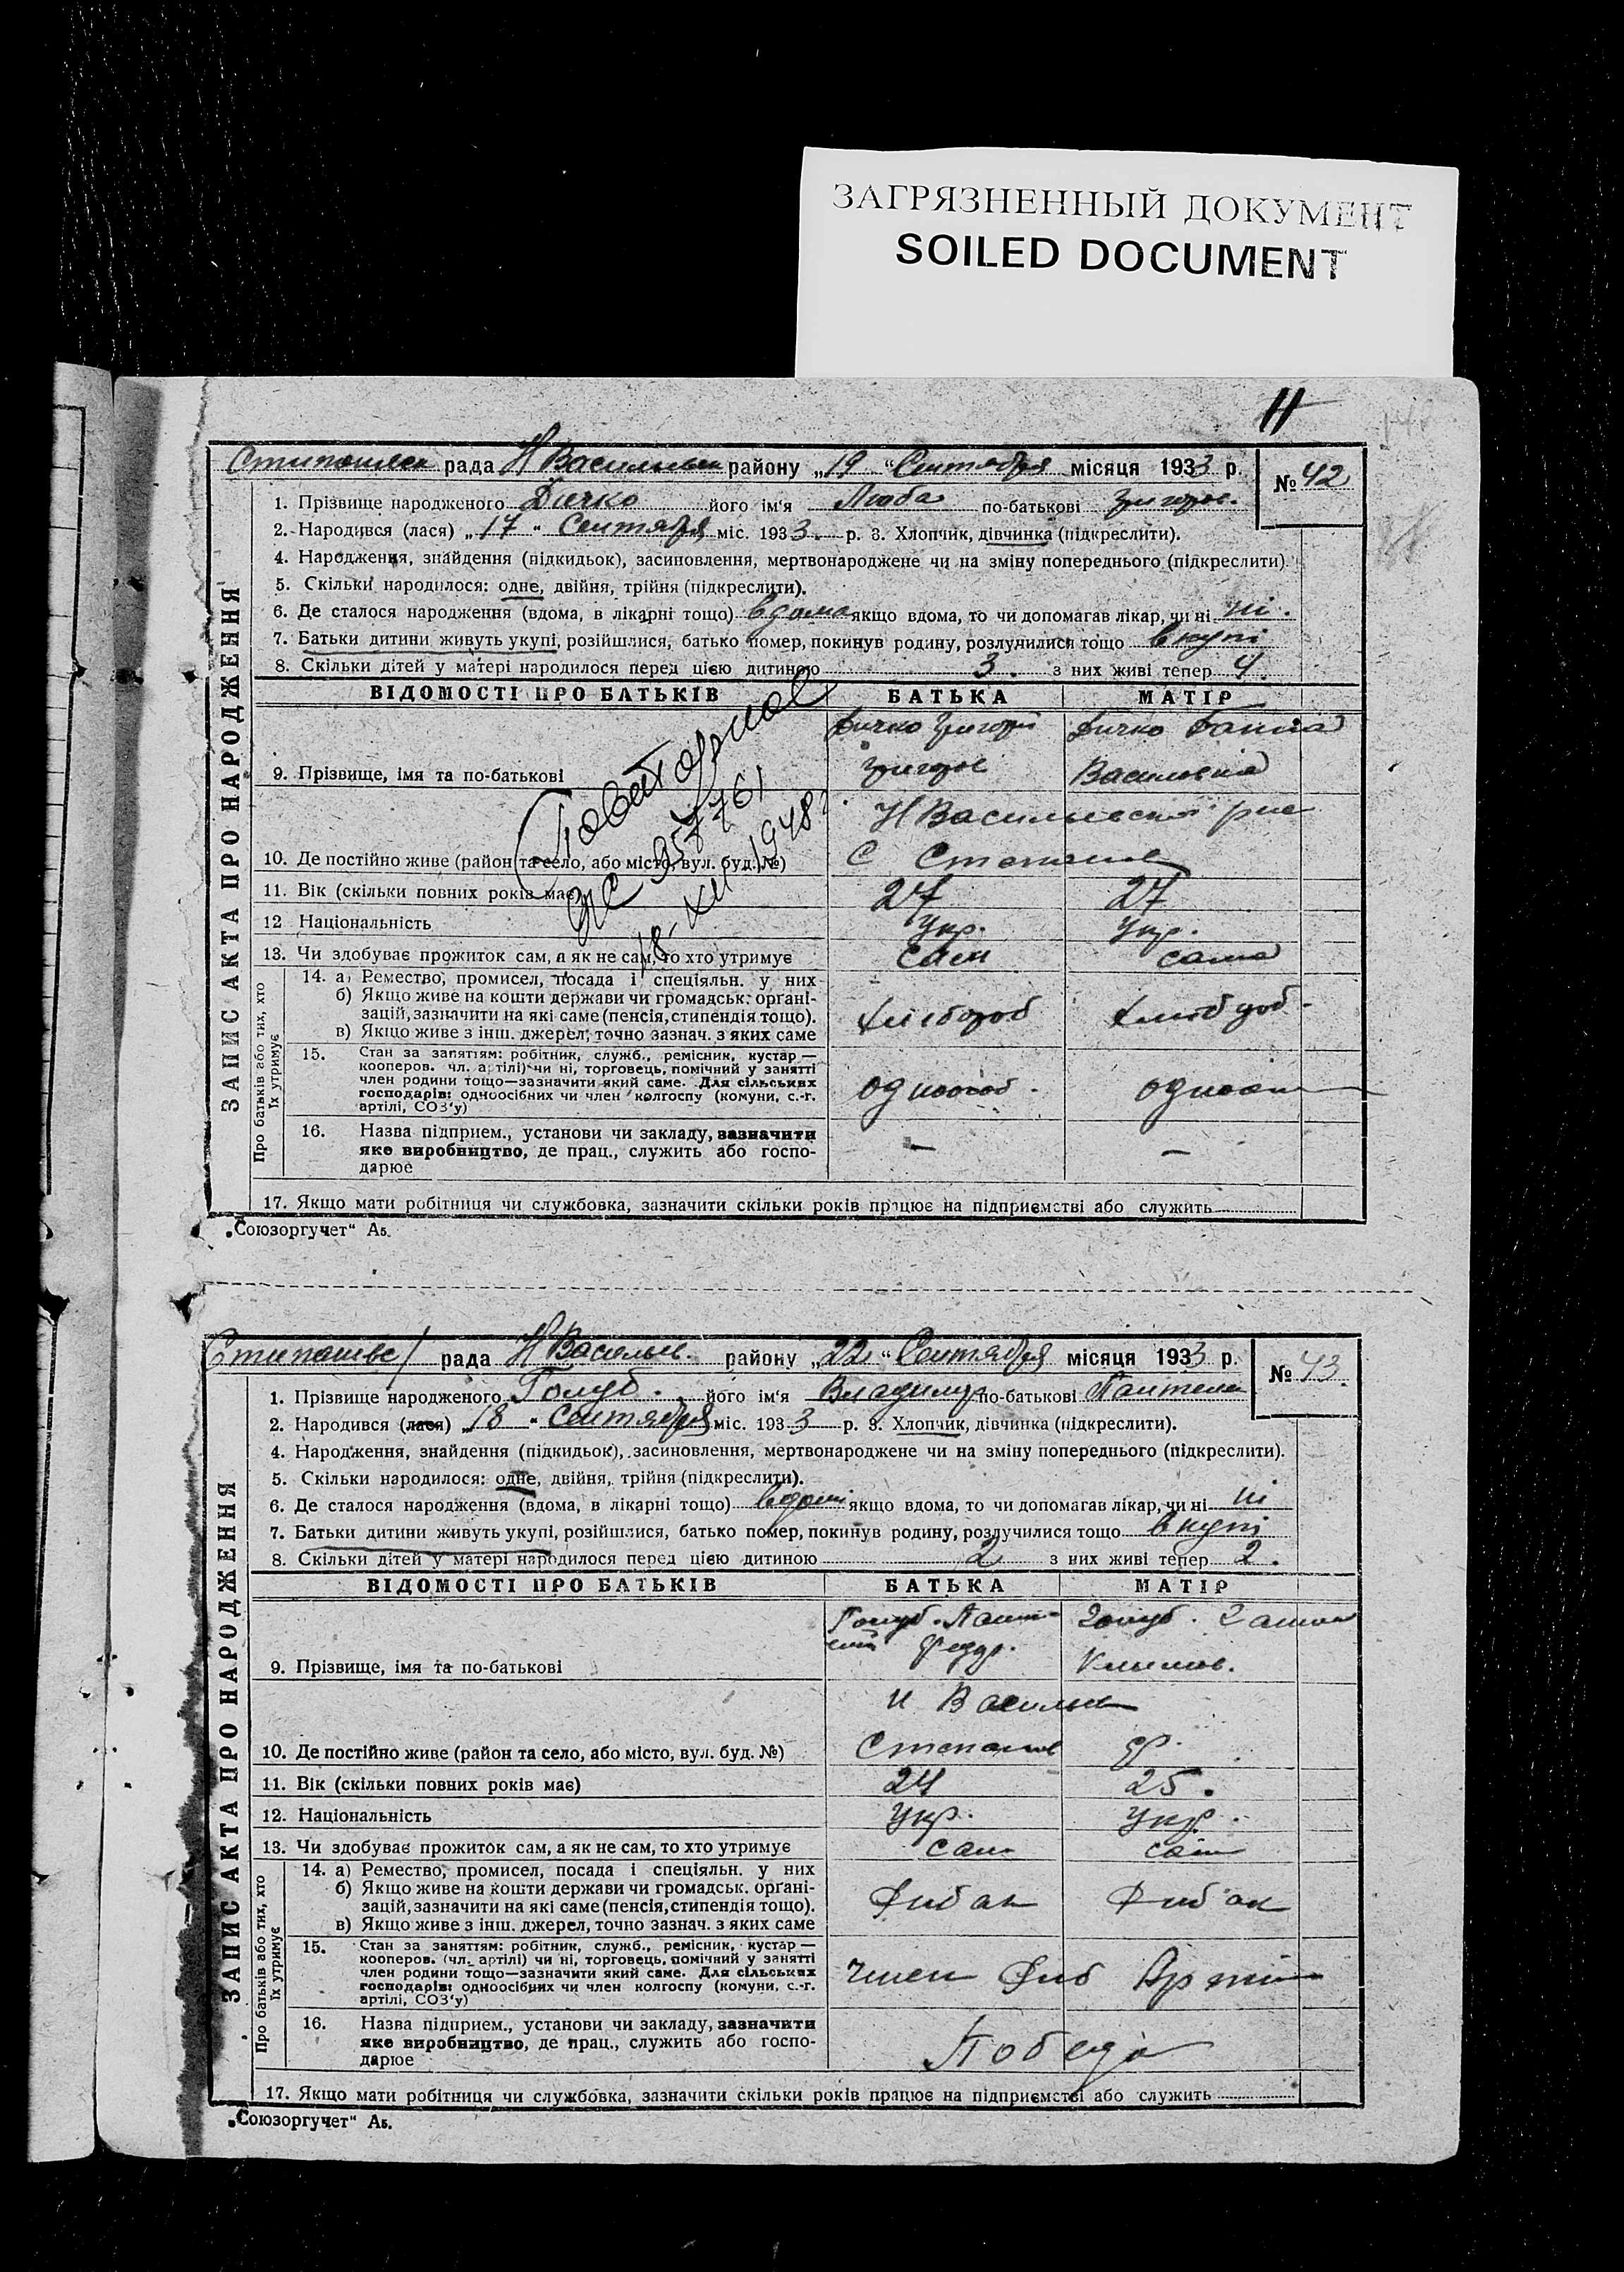 ЗАГРЯЗНЕННЫЙ ДОКУМЕНТ
SOILED DOCUMENT
11
рада Н Васильевск району „19" Сентября місяця 1933 р. № 42
ЗАПИС АКТА ПРО НАРОДЖЕННЯ
1. Прізвище народженого Дичко його ім'я Люба по-батькові Григоров.
2. Народився (лася) „17" Сентября міс. 1933 р. 3. Хлопчик, дівчинка (підкреслити).
4. Народження, знайдення (підкидьок), засиновлення, мертвонароджене чи на зміну попереднього (підкреслити).
5. Скільки народилося: одне, двійня, трійня (підкреслити).
6. Де сталося народження (вдома, в лікарні тощо) вдома якщо вдома, то чи допомагав лікар, чи ні ні.
7. Батьки дитини живуть укупі, розійшлися, батько помер, покинув родину, розлучилися тощо вкупі
8. Скільки дітей у матері народилося перед цією дитиною 3. з них живі тепер 4.
ВІДОМОСТІ ПРО БАТЬКІВ БАТЬКА МАТІР
Дичко Григорій Дичко Ганна
9. Прізвище, імя та по-батькові Григоров Василевна
Повторное
957761
18-XII 1948г
Н Васильевский
10. Де постійно живе (район та село, або місто, вул. буд. №) С
11. Вік (скільки повних років має) 27 27
12 Національність Укр. Укр.
13. Чи здобуває прожиток сам, а як не сам, то хто утримує сам сама
Про батьків або тих, хто їх утримує
14. а) Ремество, промисел, посада і спеціяльн. у них
б) Якщо живе на кошти держави чи громадськ. органі-
зацій, зазначити на які саме (пенсія, стипендія тощо).
в) Якщо живе з інш. джерел, точно зазнач. з яких саме
хлібороб хлібороб.
15. Стан за заняттям: робітник, служб., ремісник, кустар —
кооперов. чл. артілі) чи ні, торговець, помічний у занятті
член родини тощо—зазначити який саме. Для сільських
господарів: одноосібних чи член колгоспу (комуни, с.-г.
артілі, СОЗ'у)
одноособ. одноос
16. Назва підприєм., установи чи закладу, зазначити
яке виробництво, де прац., служить або госпо-
дарює
— —
17. Якщо мати робітниця чи службовка, зазначити скільки років працює на підприємстві або служить
„Союзоргучет" Аб.
рада Н Васильев. району „22" Сентября місяця 1933 р. № 43.
ЗАПИС АКТА ПРО НАРОДЖЕННЯ
1. Прізвище народженого Голуб. його ім'я Владимир по-батькові Пантелем
2. Народився (лася) „18" Сентября міс. 1933 р. 3. Хлопчик, дівчинка (підкреслити).
4. Народження, знайдення (підкидьок), засиновлення, мертвонароджене чи на зміну попереднього (підкреслити).
5. Скільки народилося: одне, двійня, трійня (підкреслити).
6. Де сталося народження (вдома, в лікарні тощо) вдомі якщо вдома, то чи допомагав лікар, чи ні ні
7. Батьки дитини живуть укупі, розійшлися, батько помер, покинув родину, розлучилися тощо вкупі
8. Скільки дітей у матері народилося перед цією дитиною 2 з них живі тепер 2.
ВІДОМОСТІ ПРО БАТЬКІВ БАТЬКА МАТІР
Голуб. Панте- Голуб.
9. Прізвище, імя та по-батькові Федор. Климов.
Н Васильев
10. Де постійно живе (район та село, або місто, вул. буд. №)
11. Вік (скільки повних років має) 24 25.
12. Національність Укр. Укр.
13. Чи здобуває прожиток сам, а як не сам, то хто утримує сам сам
Про батьків або тих, хто їх утримує
14. а) Ремество, промисел, посада і спеціяльн. у них
б) Якщо живе на кошти держави чи громадськ. органі-
зацій, зазначити на які саме (пенсія, стипендія тощо).
в) Якщо живе з інш. джерел, точно зазнач. з яких саме
Рибак Рибак
15. Стан за заняттям: робітник, служб., ремісник, кустар —
кооперов. (чл. артілі) чи ні, торговець, помічний у занятті
член родини тощо—зазначити який саме. Для сільських
господарів: одноосібних чи член колгоспу (комуни, с.-г.
артілі, СОЗ'у)
член Риб Артілі
16. Назва підприєм., установи чи закладу, зазначити
яке виробництво, де прац., служить або госпо-
дарює
Победа
17. Якщо мати робітниця чи службовка, зазначити скільки років працює на підприємстві або служить
„Союзоргучет" Аб.